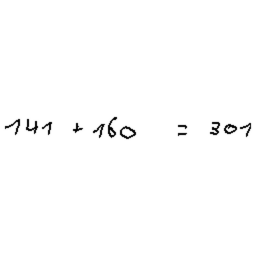 141 + 160 = 301